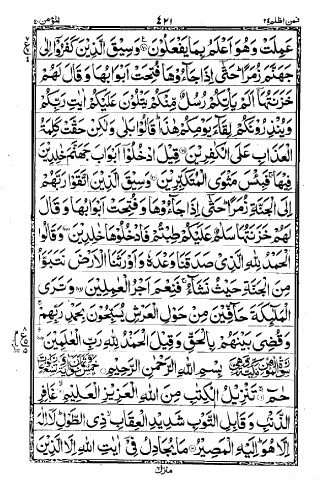 فمن اظلم ٢٤ ٤٢١ المؤمن ٤٠
عَمِلَتْ وَهُوَ اَعْلَمُ بِمَا يَفْعَلُوْنَ وَسِيْقَ الَّذِيْنَ كَفَرُوْٓا اِلٰى
جَهَنَّمَ زُمَرًا حَتّٰٓى اِذَا جَآءُوْهَا فُتِحَتْ اَبْوَابُهَا وَقَالَ لَهُمْ
خَزَنَتُهَآ اَلَمْ يَاْتِكُمْ رُسُلٌ مِّنْكُمْ يَتْلُوْنَ عَلَيْكُمْ اٰيٰتِ رَبِّكُمْ
وَيُنْذِرُوْنَكُمْ لِقَآءَ يَوْمِكُمْ هٰذَا قَالُوْا بَلٰى وَلٰكِنْ حَقَّتْ كَلِمَةُ
الْعَذَابِ عَلَى الْكٰفِرِيْنَ قِيْلَ ادْخُلُوْٓا اَبْوَابَ جَهَنَّمَ خٰلِدِيْنَ
فِيْهَا فَبِئْسَ مَثْوَى الْمُتَكَبِّرِيْنَ وَسِيْقَ الَّذِيْنَ اتَّقَوْا رَبَّهُمْ
اِلَى الْجَنَّةِ زُمَرًا حَتّٰٓى اِذَا جَآءُوْهَا وَفُتِحَتْ اَبْوَابُهَا وَقَالَ
لَهُمْ خَزَنَتُهَا سَلٰمٌ عَلَيْكُمْ طِبْتُمْ فَادْخُلُوْهَا خٰلِدِيْنَ وَقَالُوا
الْحَمْدُ لِلّٰهِ الَّذِيْ صَدَقَنَا وَعْدَهٗ وَاَوْرَثَنَا الْاَرْضَ نَتَبَوَّاُ
مِنَ الْجَنَّةِ حَيْثُ نَشَآءُ فَنِعْمَ اَجْرُ الْعٰمِلِيْنَ وَتَرَى
الْمَلٰٓئِكَةَ حَآفِّيْنَ مِنْ حَوْلِ الْعَرْشِ يُسَبِّحُوْنَ بِحَمْدِ رَبِّهِمْ
وَقُضِيَ بَيْنَهُمْ بِالْحَقِّ وَقِيْلَ الْحَمْدُ لِلّٰهِ رَبِّ الْعٰلَمِيْنَ
بِسْمِ اللّٰهِ الرَّحْمٰنِ الرَّحِيْمِ
حٰمٓ تَنْزِيْلُ الْكِتٰبِ مِنَ اللّٰهِ الْعَزِيْزِ الْعَلِيْمِ غَافِرِ
الذَّنْبِ وَقَابِلِ التَّوْبِ شَدِيْدِ الْعِقَابِ ذِي الطَّوْلِ لَآ اِلٰهَ
اِلَّا هُوَ اِلَيْهِ الْمَصِيْرُ مَا يُجَادِلُ فِيْٓ اٰيٰتِ اللّٰهِ اِلَّا الَّذِيْنَ
منزل